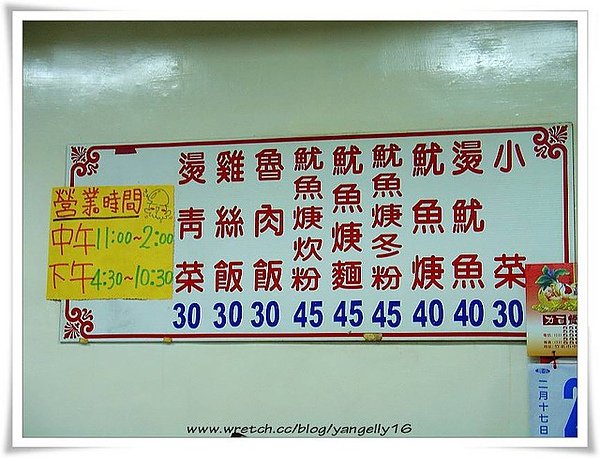 營業時間
中午11:00~2:00
下午4:30~10:30
小菜 30
燙魷魚 40
魷魚焿 40
魷魚焿冬粉 45
魷魚焿麵 45
魷魚焿炊粉 45
魯肉飯 30
雞絲飯 30
燙青菜 30
二月十七日
www.wretch.cc/blog/yangelly16